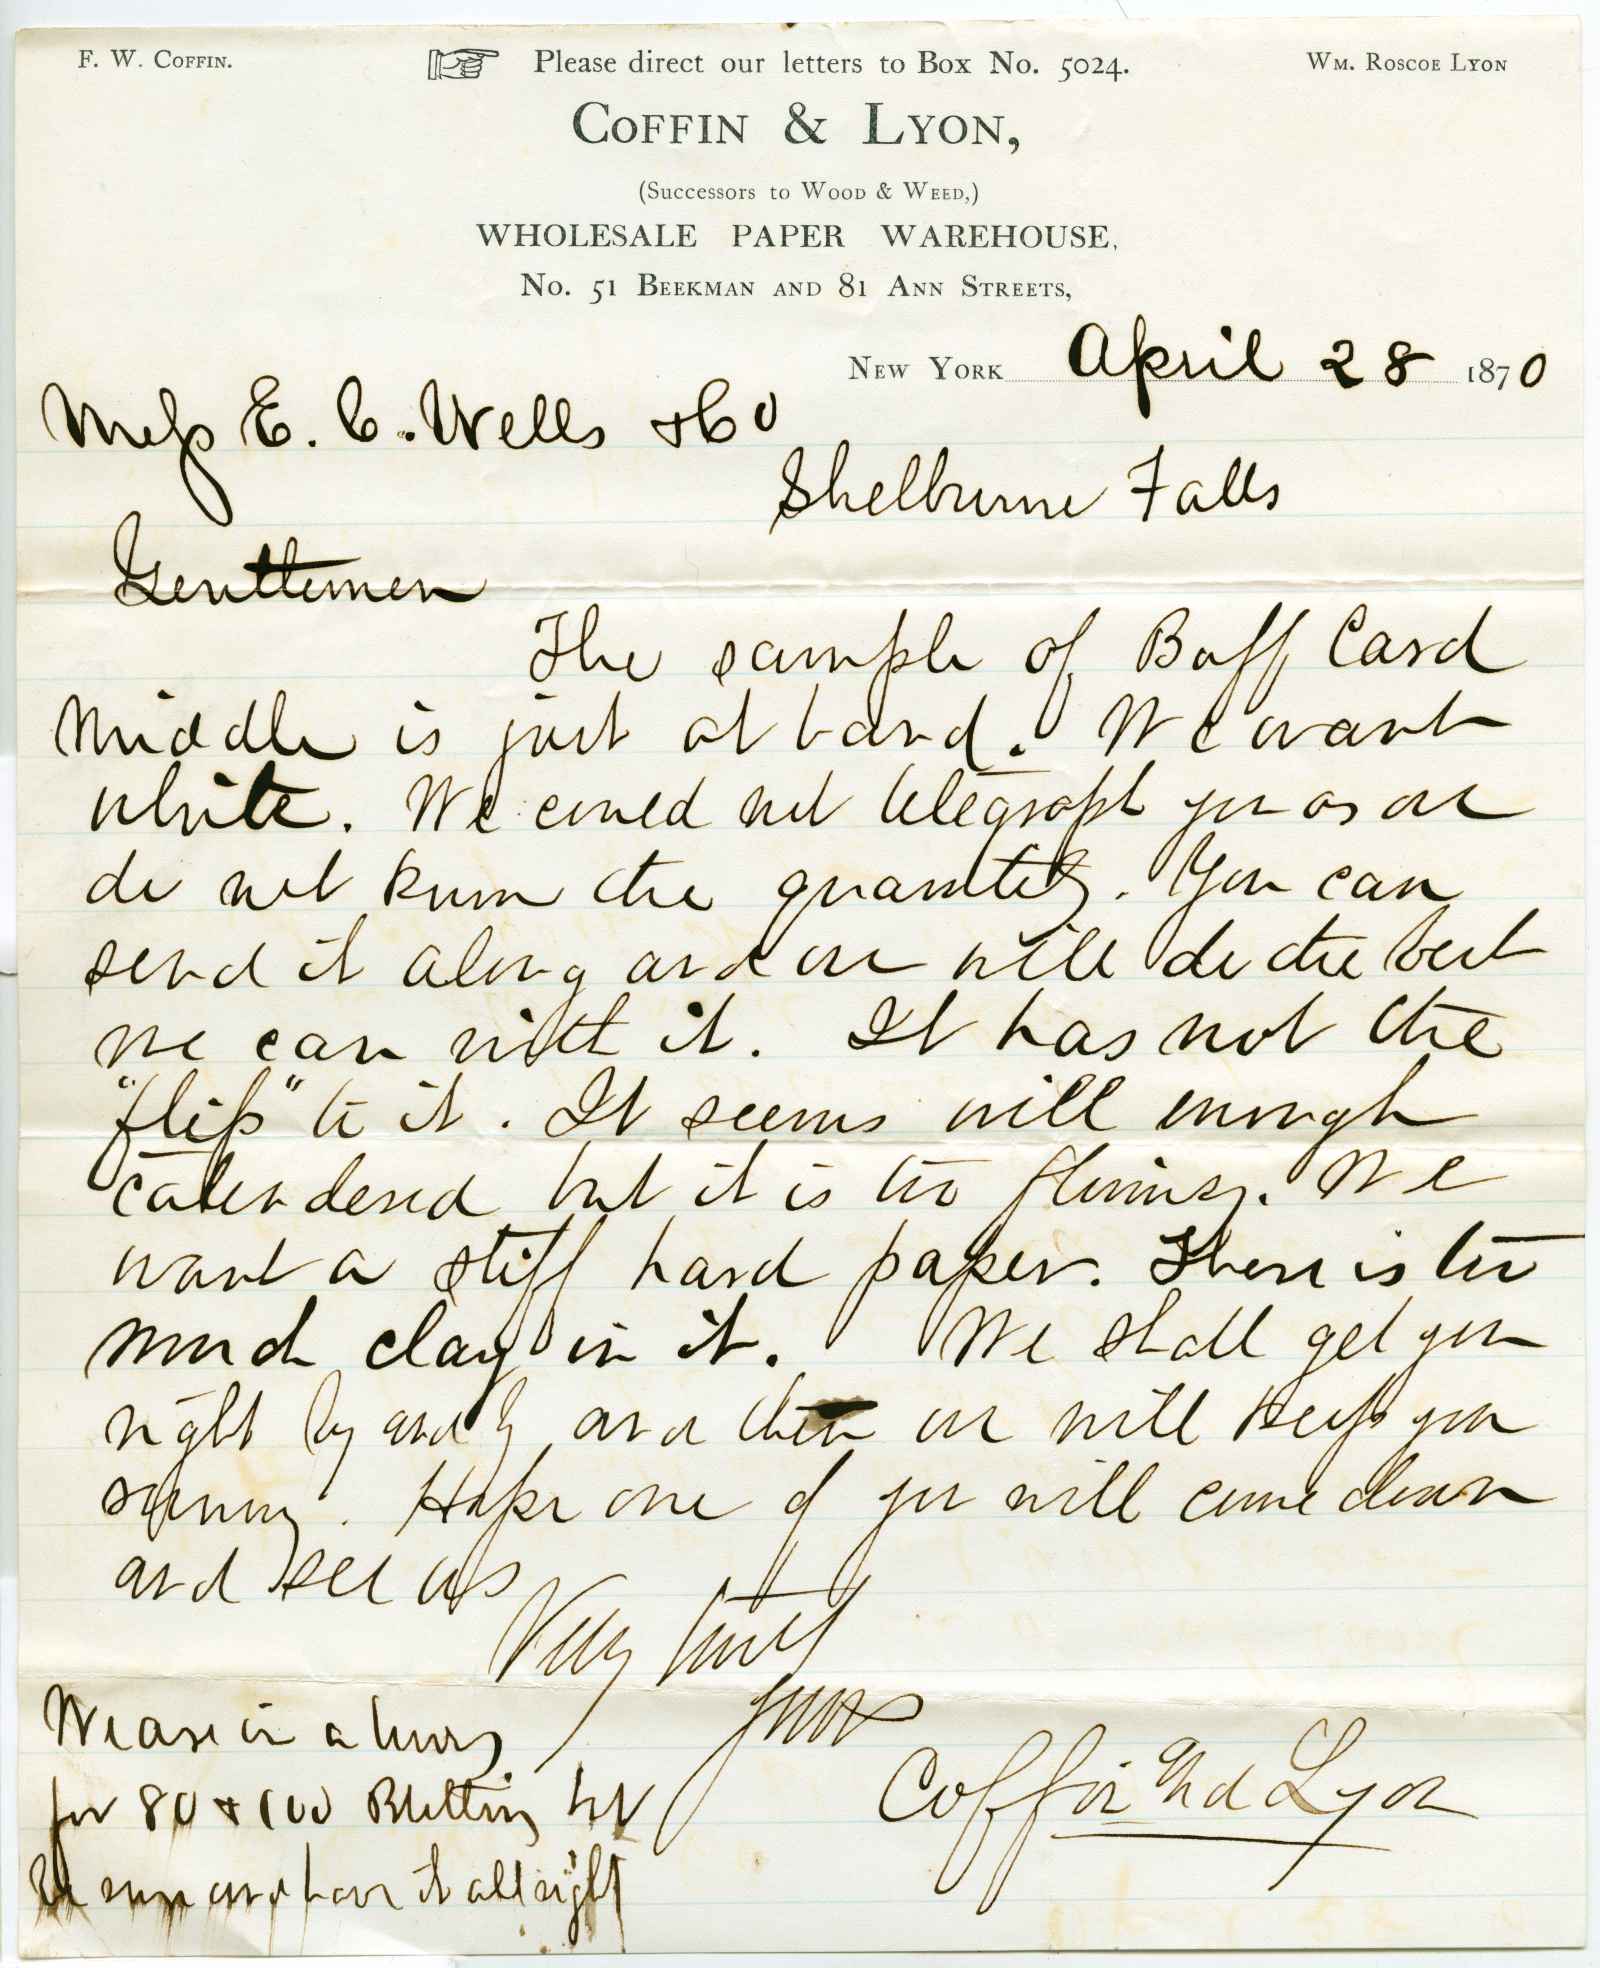 F. W. COFFIN.
Please direct our letters to Box No. 5024.
WM. ROSCOE LYON
COFFIN & LYON,
(Successors to WOOD & WEED,)
WHOLESALE PAPER WAREHOUSE,
No. 51 BEEKMAN AND 81 ANN STREETS,
NEW YORK April 28 1870
Mess E. C. Wells & Co
Shelburne Falls
Gentlemen
The sample of Buff Card
Middle is just at hand. We want
white. We could not telegraph you as we
do not know the quantity. You can
send it along and we will do the best
we can with it. It has not the
"flip" to it. It seems well enough
calendered but it is too flimsy. We
want a stiff hard paper. There is too
much clay in it. We shall get you
right by and by and then we will keep you
running. Hope one of you will come down
and see us
Very truly
yours
Coffin and Lyon
We are in a hurry
for 80 & 100 Blotting but
be sure and have it all right